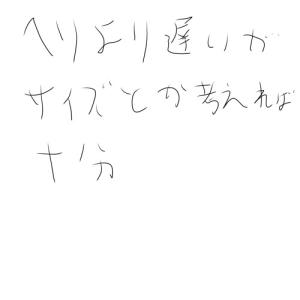 ヘリより遅いが
サイズとか考えれば
十分